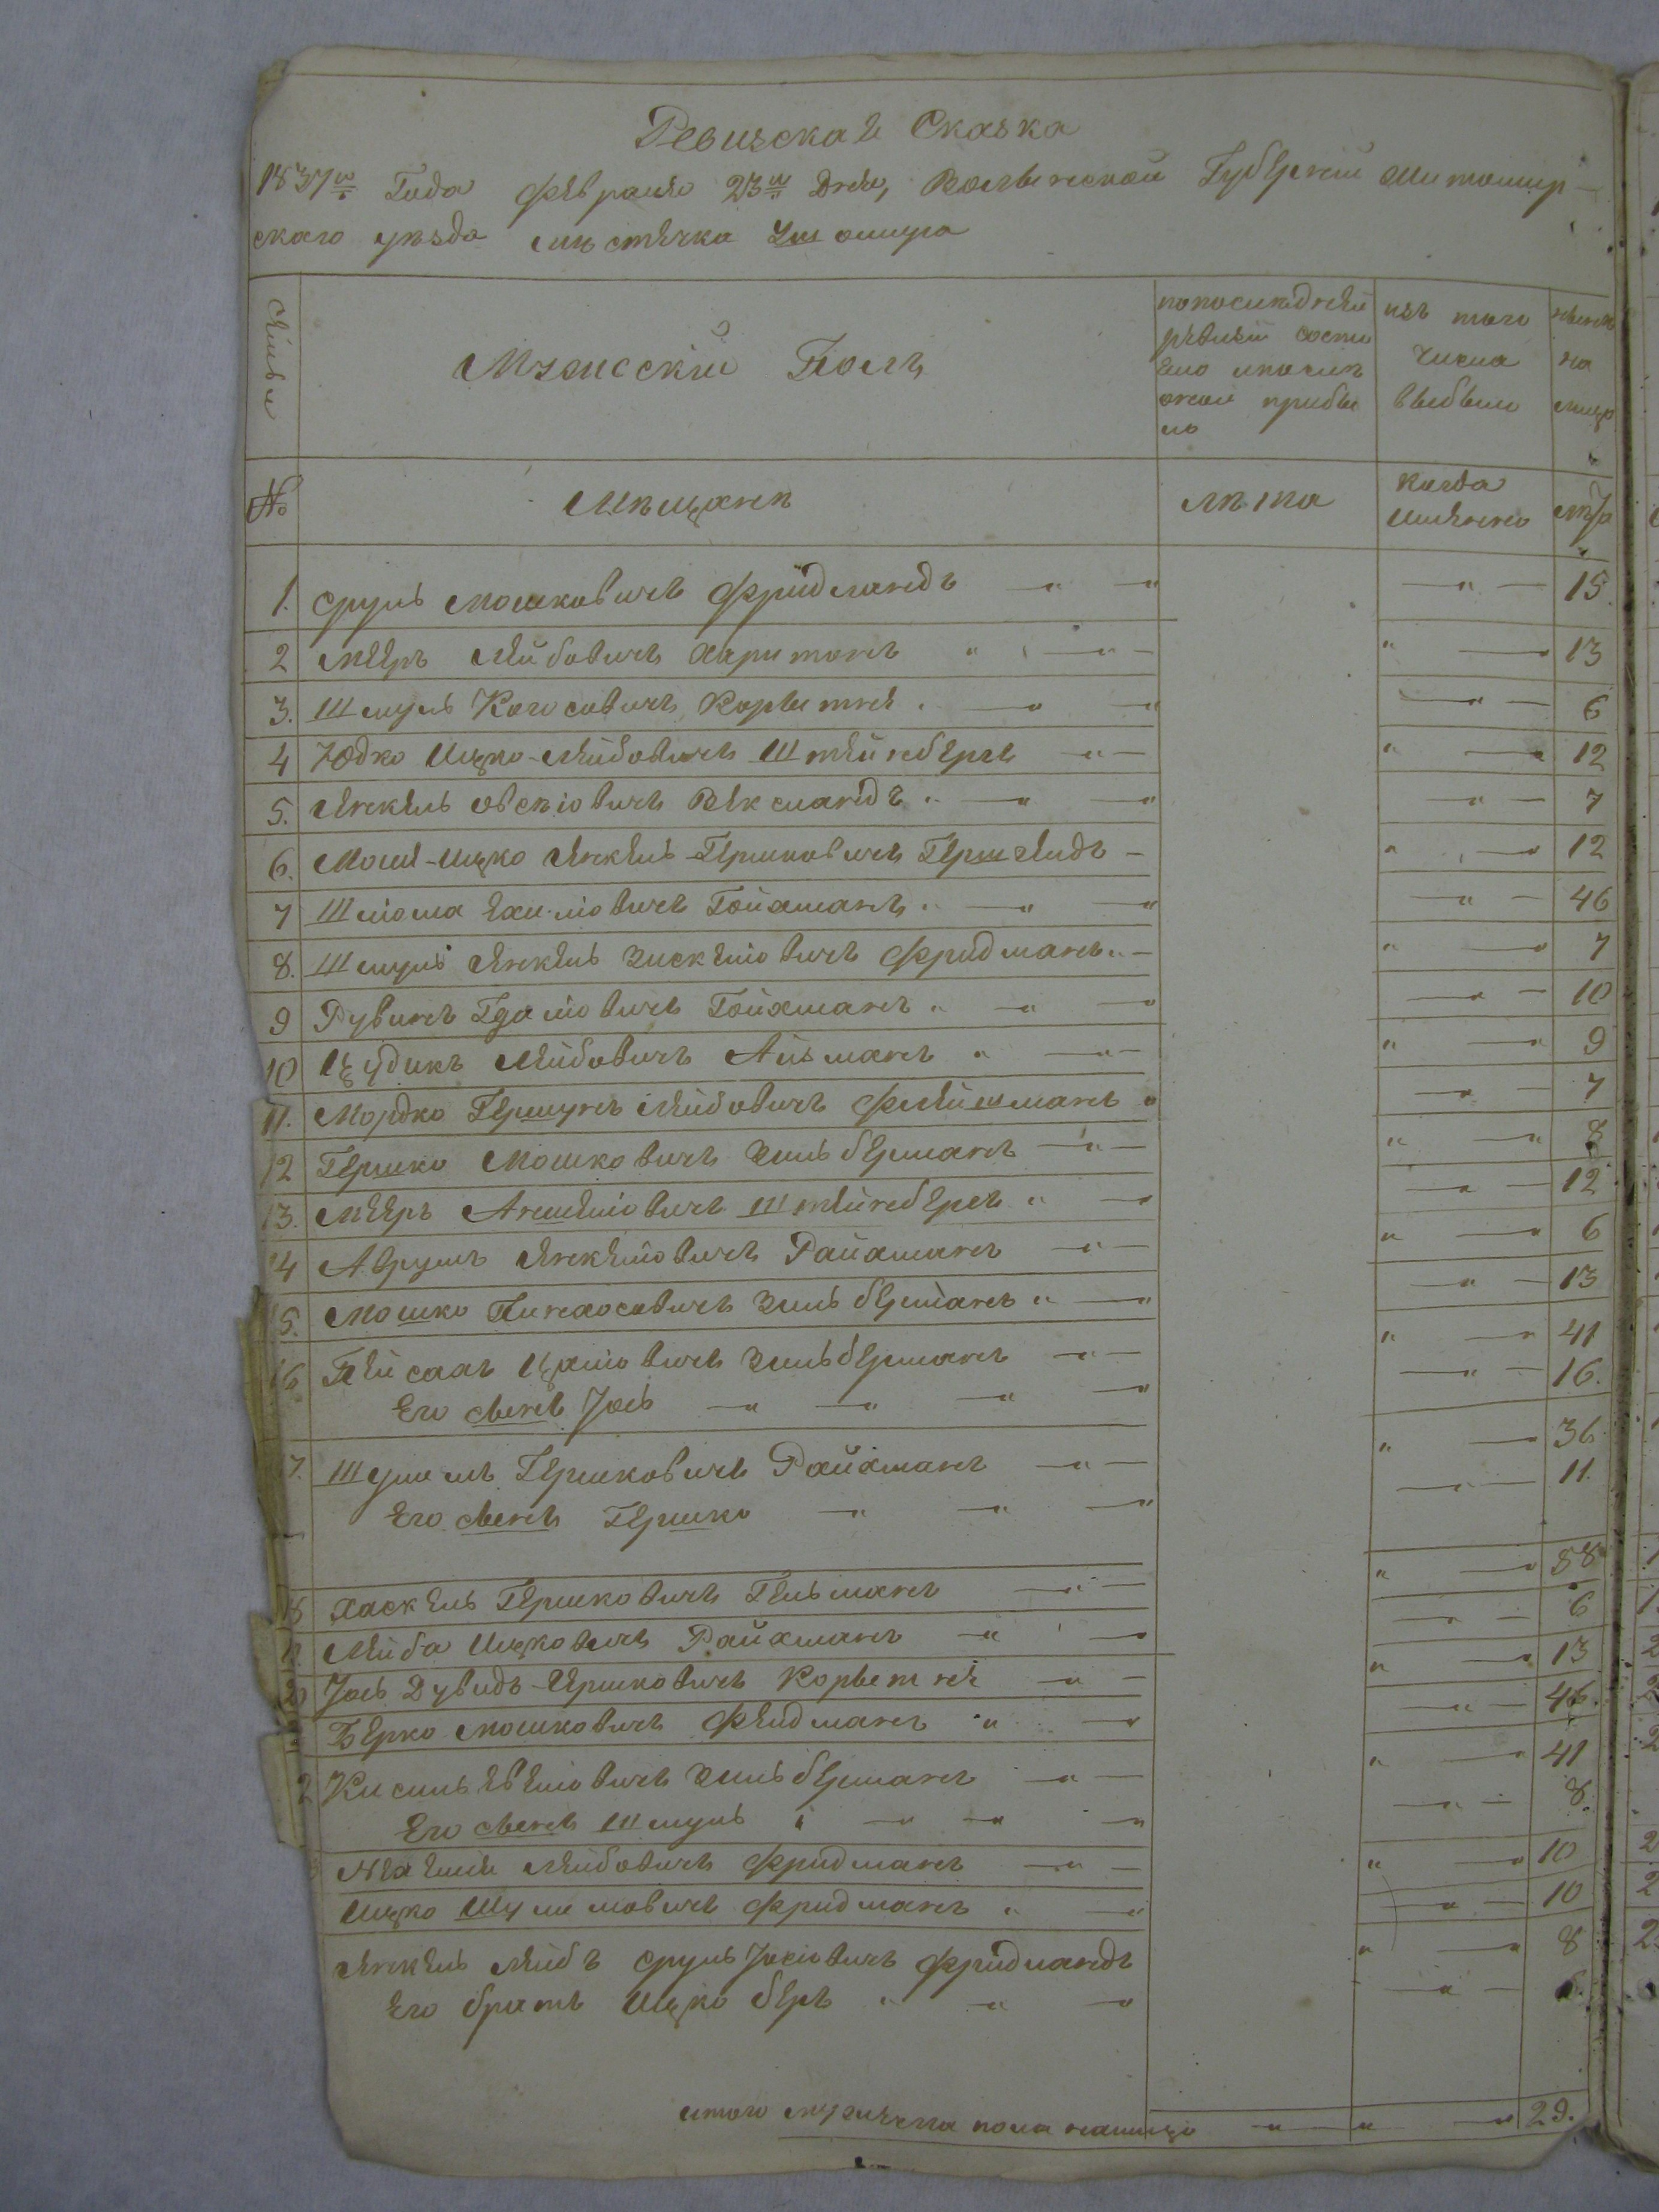 Ревизская Сказка
1837го Года февраля 23го Дня, Волынской Губерніи Житомир-
скаго уѣзда мѣстечка Ушомира
Семьи
Мужсскій Полъ
попоследней ревизіи состояло ипослѣ оной прибыло
изъ того числа выбыли
нынѣ на лицо
№
Мѣщанѣ
лѣта
Когда Именно
лѣта
1. Сруль Мошковичъ Фридландъ — " — " — " — 15.
2 Мееръ Лейбовичъ Харитонъ " — " — " — " 13
3. Шмуль Когосовичъ Корытнй " — " — " — " — 6
4 Юдко Ицко-Лейбовичъ Штейнбергъ — " — " — " 12
5. Янкель Овсѣовичъ Вексландъ " — " — " — " — 7
6. Моше-Ицко Янкель-Гершковичъ Гершзидъ — " — " 12
7 Шлома Ехилiовичъ Гойхманъ " — " — " — " — 46
8. Шмуль Янкель Зискелiовичъ Фридманъ " — " — " 7
9 Рувинъ Гдалiовичъ Гойхманъ " — " — " — " — 10
10 Цудикъ Лейбовичъ Айзманъ " — " — " — " 9
11. Мордко Гершунъ Лейбовичъ Флейшманъ " — " — 7
12 Гершко Мошковичъ Зильберманъ — " — " — " 8
13. Мееръ Аншелiовичъ Штейнбергъ " — " — " — 12
14 Аврумъ Янкелiовичъ Райхманъ — " — " — " 6
15. Мошко Пинхасовичъ Зильберманъ " — " — " — 13
16 Пейсахъ Цалiовичъ Зильберманъ — " — " — " 41
Его сынъ Іось — " — " — " — " — " — 16.
17. Шулимъ Гершковичъ Райхманъ — " — " — " 36
Его сынъ Гершко — " — " — " — " — 11.
18 Хаскель Гершковичъ Гельманъ — " — " — " 58
Лейба Ицковичъ Райхманъ — " — " — " — 6
20 Іось Дувидъ-Гершковичъ Корытнй — " — " — " 13
Берко Мошковичъ Фридманъ " — " — " — 46.
2 Кисиль Евелiовичъ Зильберманъ — " — " — " 41
Его сынъ Шмуль — " — " — " — " — 8.
Нехемiя Лейбовичъ Фридманъ — " — " — " 10
Ицко Шулимовичъ Фридманъ " — " — " — 10
Янкель Лейбъ Сруль Іосiовичъ Фридландъ " — " 8
Его братъ Ицко Беръ " — " — " — " —
итого мужеска пола налицо — " — " — " 29.